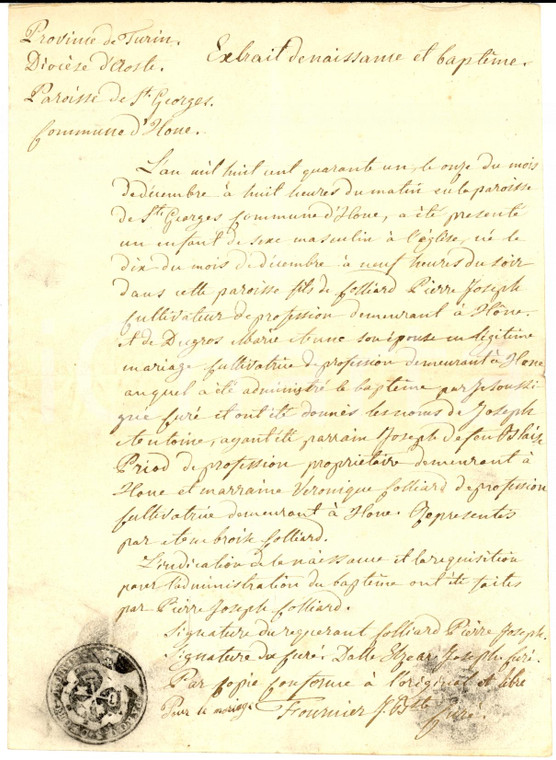 Province de Turin.
Extrait de naissance et baptême.
Diocèse d'Aoste.
Paroisse de St Georges.
Commune d'Hone.
L'an mil huit cent quarante un, le onze du mois
de décembre à huit heures du matin en la paroisse
de St Georges Commune d'Hone, a été presenté
un enfant de sexe masculin à l'église, né le
dix du mois de décembre à neuf heures du soir
dans cette paroisse fils de Colliard Pierre Joseph
Cultivateur de profession demeurant à Hône.
et de Dugros Marie Anne son épouse en légitime
mariage Cultivatrice de profession demeurant à Hone
auquel a été administré le baptême par je soussi
gné Curé et ont été donnés les noms de Joseph
Antoine, ayant été parrain Joseph de feu Blaise
Priod de profession propriétaire demeurant à
Hone et marraine Véronique Colliard de profession
Cultivatrice demeurant à Hone. Representés
par Ambroise Colliard.
L'indication de la naissance et la requisition
pour l'administration du baptême ont été faites
par Pierre Joseph Colliard.
Signature du requerant Colliard Pierre Joseph.
Signature du Curé. Dalle Joseph Curé.
Par Copie Conforme à l'original et libre
Pour le mariage Fournier J. Bte Curé.